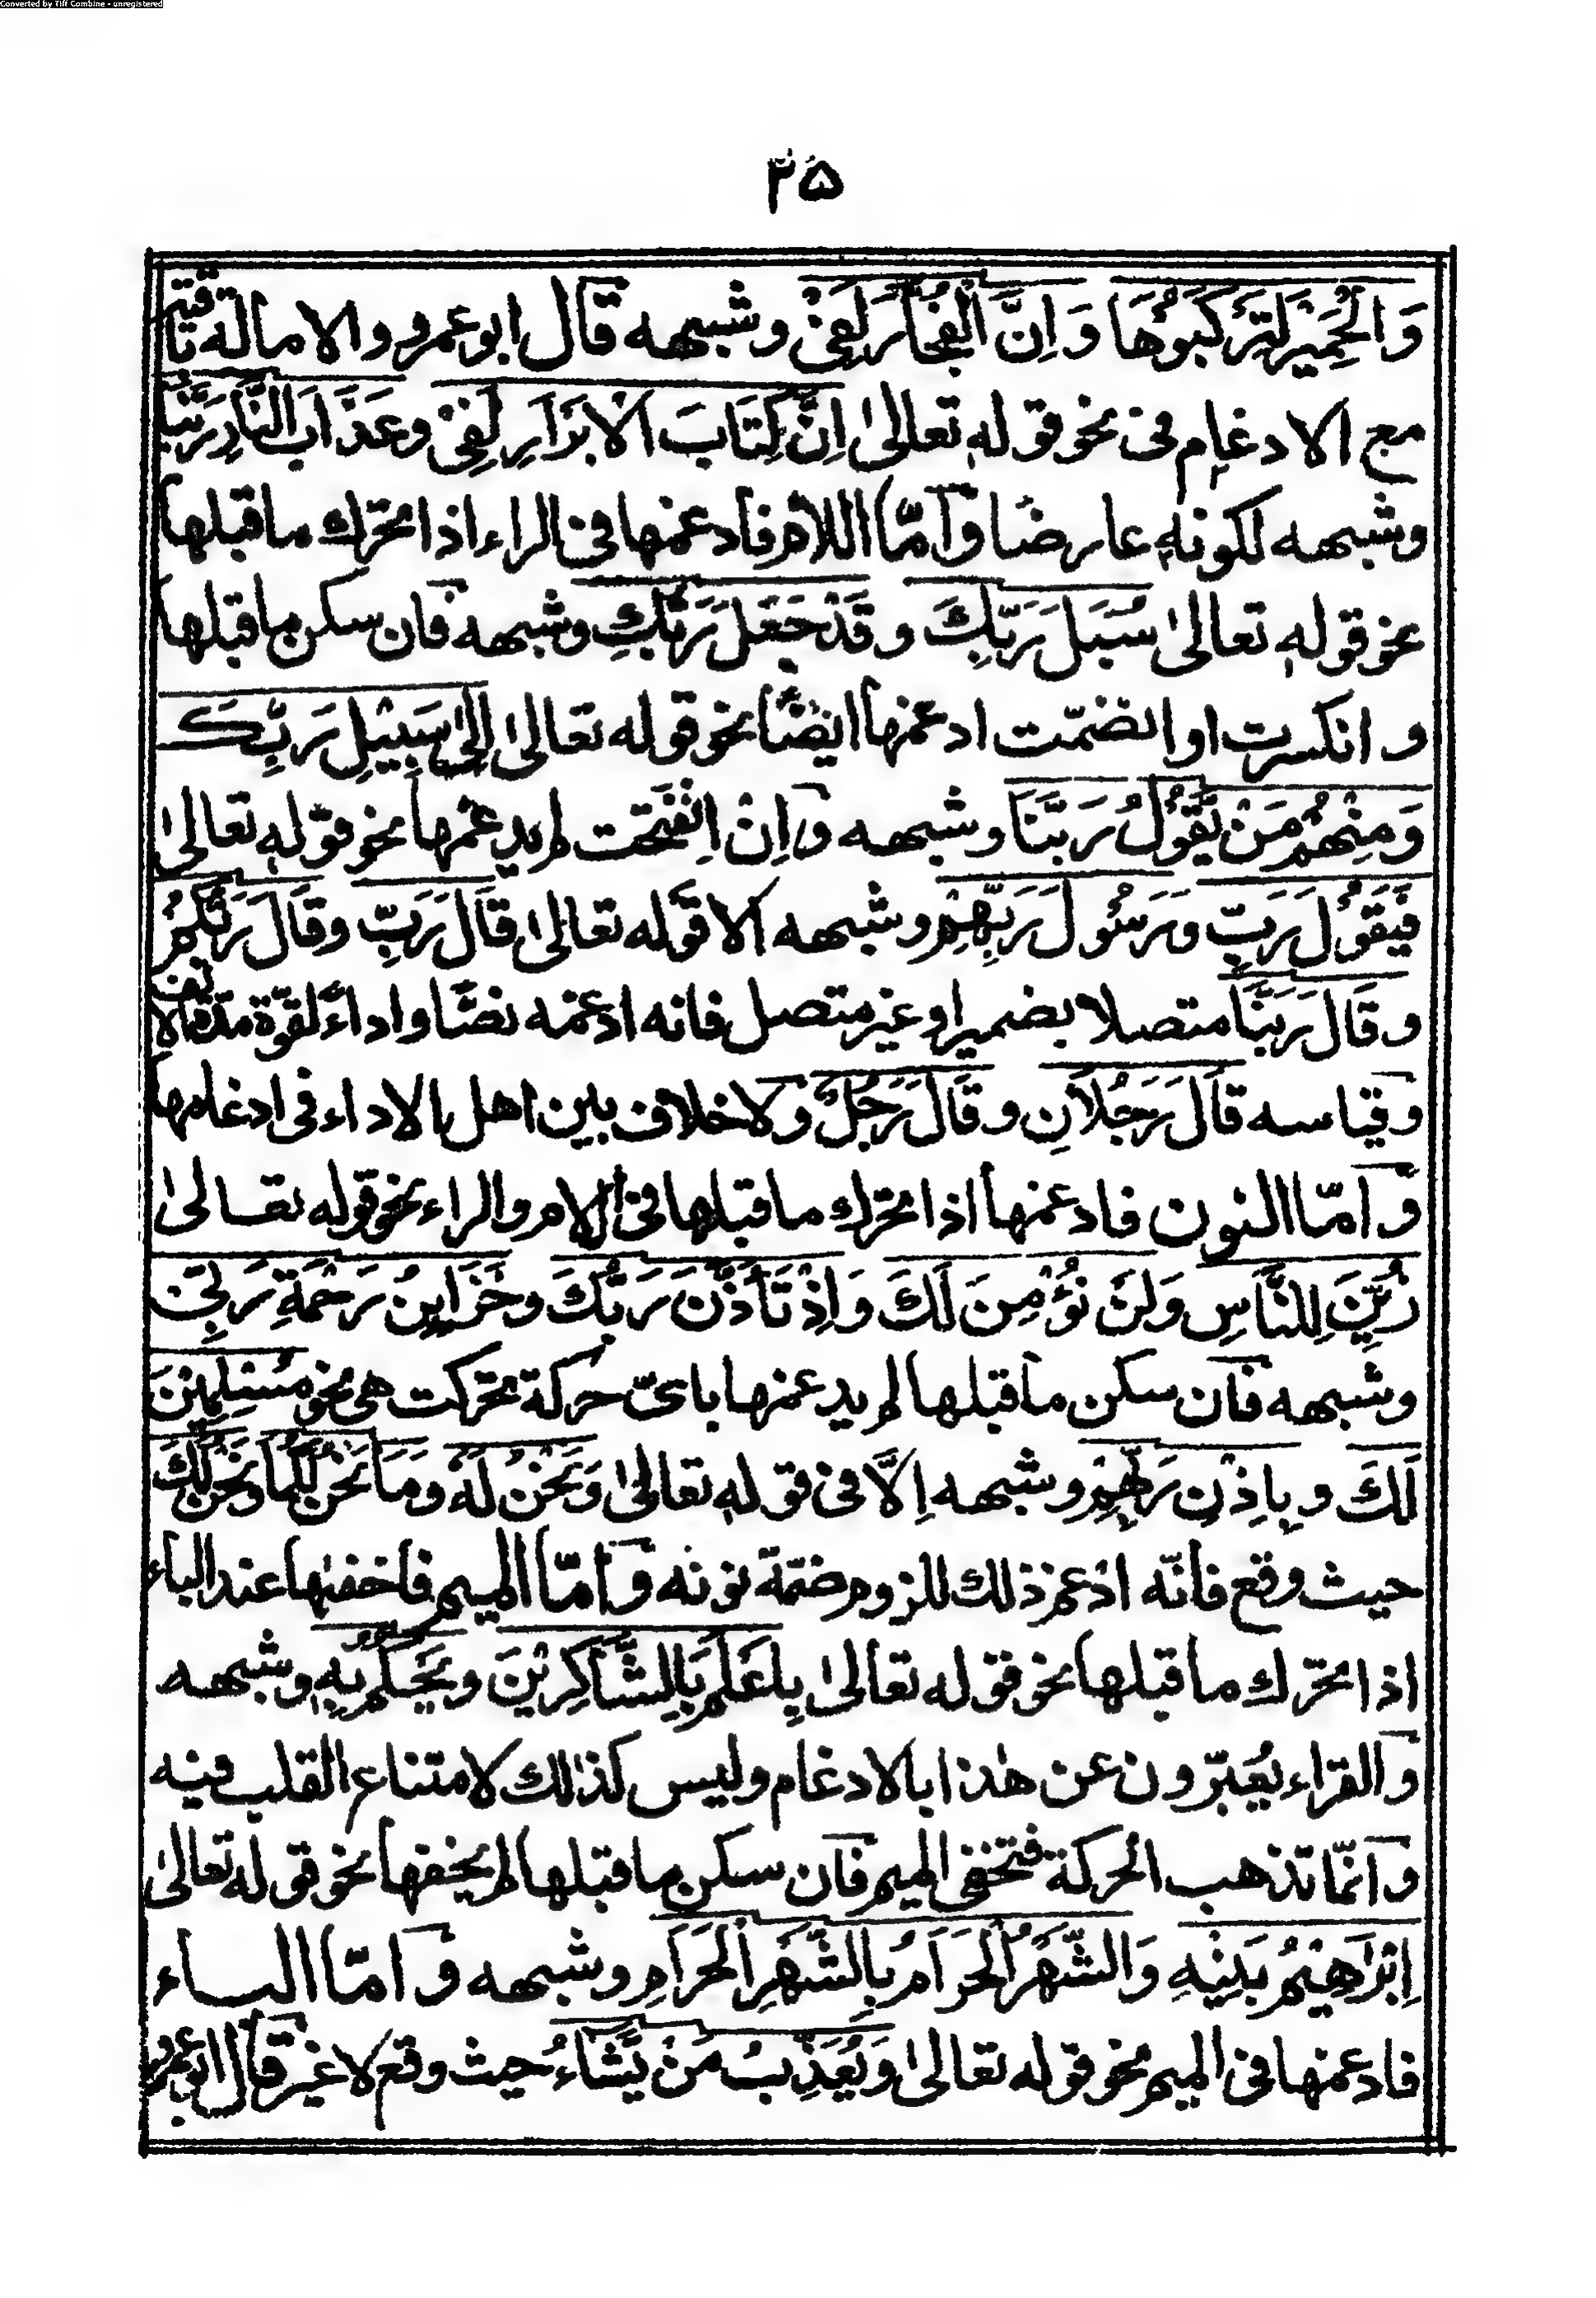 Converted by Tiff Combine - unregistered
۳۵
وَالْحَمِيْرَ لِتَرْكَبُوْهَا وَاِنَّ الْفُجَّارَ لَفِىْ وشبهه قال ابو عمرو والامالة باقية
مع الادغام فى نحو قوله تعالىٰ اِنَّ كِتَابَ الْاَبْرَارِ لَفِىْ وعَذَابَ النَّارِ رَبَّنَا
وشبهه لكونه عارضا وَامّا اللام فادغمها فى الراء اذا تحرّك ماقبلها
نحو قوله تعالىٰ سُبُلَ رَبِّكِ وقَدْ جَعَلَ رَبُّكِ وشبهه فان سكن ماقبلها
وانكسرت او انضمّت ادغمها ايضًا نحو قوله تعالىٰ اِلىٰ سَبِيْلِ رَبِّكَ
وَمِنْهُمْ مَنْ يَّقُوْلُ رَبَّنَا وشبهه وَاِنْ اِنْفَتَحَت لم يدغمها نحو قوله تعالىٰ
فَيَقُوْلَ رَبِّ وَرَسُوْلَ رَبِّهِمْ وشبهه الا قوله تعالىٰ قَالَ رَبِّ وقَالَ رَبُّكُمُ
وقَالَ رَبُّنَا متصلا بضمير او غير متصل فانه ادغمه نصًّا واداءً لقوّة مدّة الالف
وقياسه قَالَ رَجُلَانِ وقَالَ رَجُلٌ ولاخلاف بين اهل الاداء فى ادغامها
وَامّا النون فادغمها اذا تحرّك ماقبلها فى اللام والراء نحو قوله تعالىٰ
زُيِّنَ لِلنَّاسِ وَلَنْ نُؤْمِنَ لَكَ وَاِذْ تَأَذَّنَ رَبُّكَ وخَزَايِنُ رَحْمَةِ رَبِّىْ
وشبهه فان سكن ماقبلها لم يدغمها باىّ حركة تحركت هى نحو مُسْلِمَيْنِ
لَكَ وبِاِذْنِ رَبِّهِمْ وشبهه اِلَّا فى قوله تعالىٰ وَنَحْنُ لَهُ وَمَا نَحْنُ لَكُمَا ونَحْنُ لَكَ
حيث وقع فانّه ادغم ذلك للزوم ضمّة نونه وَامّا الميم فاخفٰها عند الباء
اذا تحرّك ماقبلها نحو قوله تعالىٰ بِاَعْلَمَ بِالشَّاكِرِيْنَ ويَحْكُمُ بِهٖ وشبهه
وَالقراء يُعَبّرون عن هٰذا بالادغام وليس كذالك لامتناع القلب فيه
وَانّما تذهب الحركة فتخفى الميم فان سكن ماقبلها لم يخفها نحو قوله تعالىٰ
اِبْرَاهِيْمُ بَنِيْهِ وَالشَّهْرُ الْحَرَامُ بِالشَّهْرِ الْحَرَامِ وشبهه وَامّا الباء
فادغمها فى الميم نحو قوله تعالىٰ وَيُعَذِّبُ مَنْ يَّشَاءُ حيث وقع لاغير قال ابو عمرو